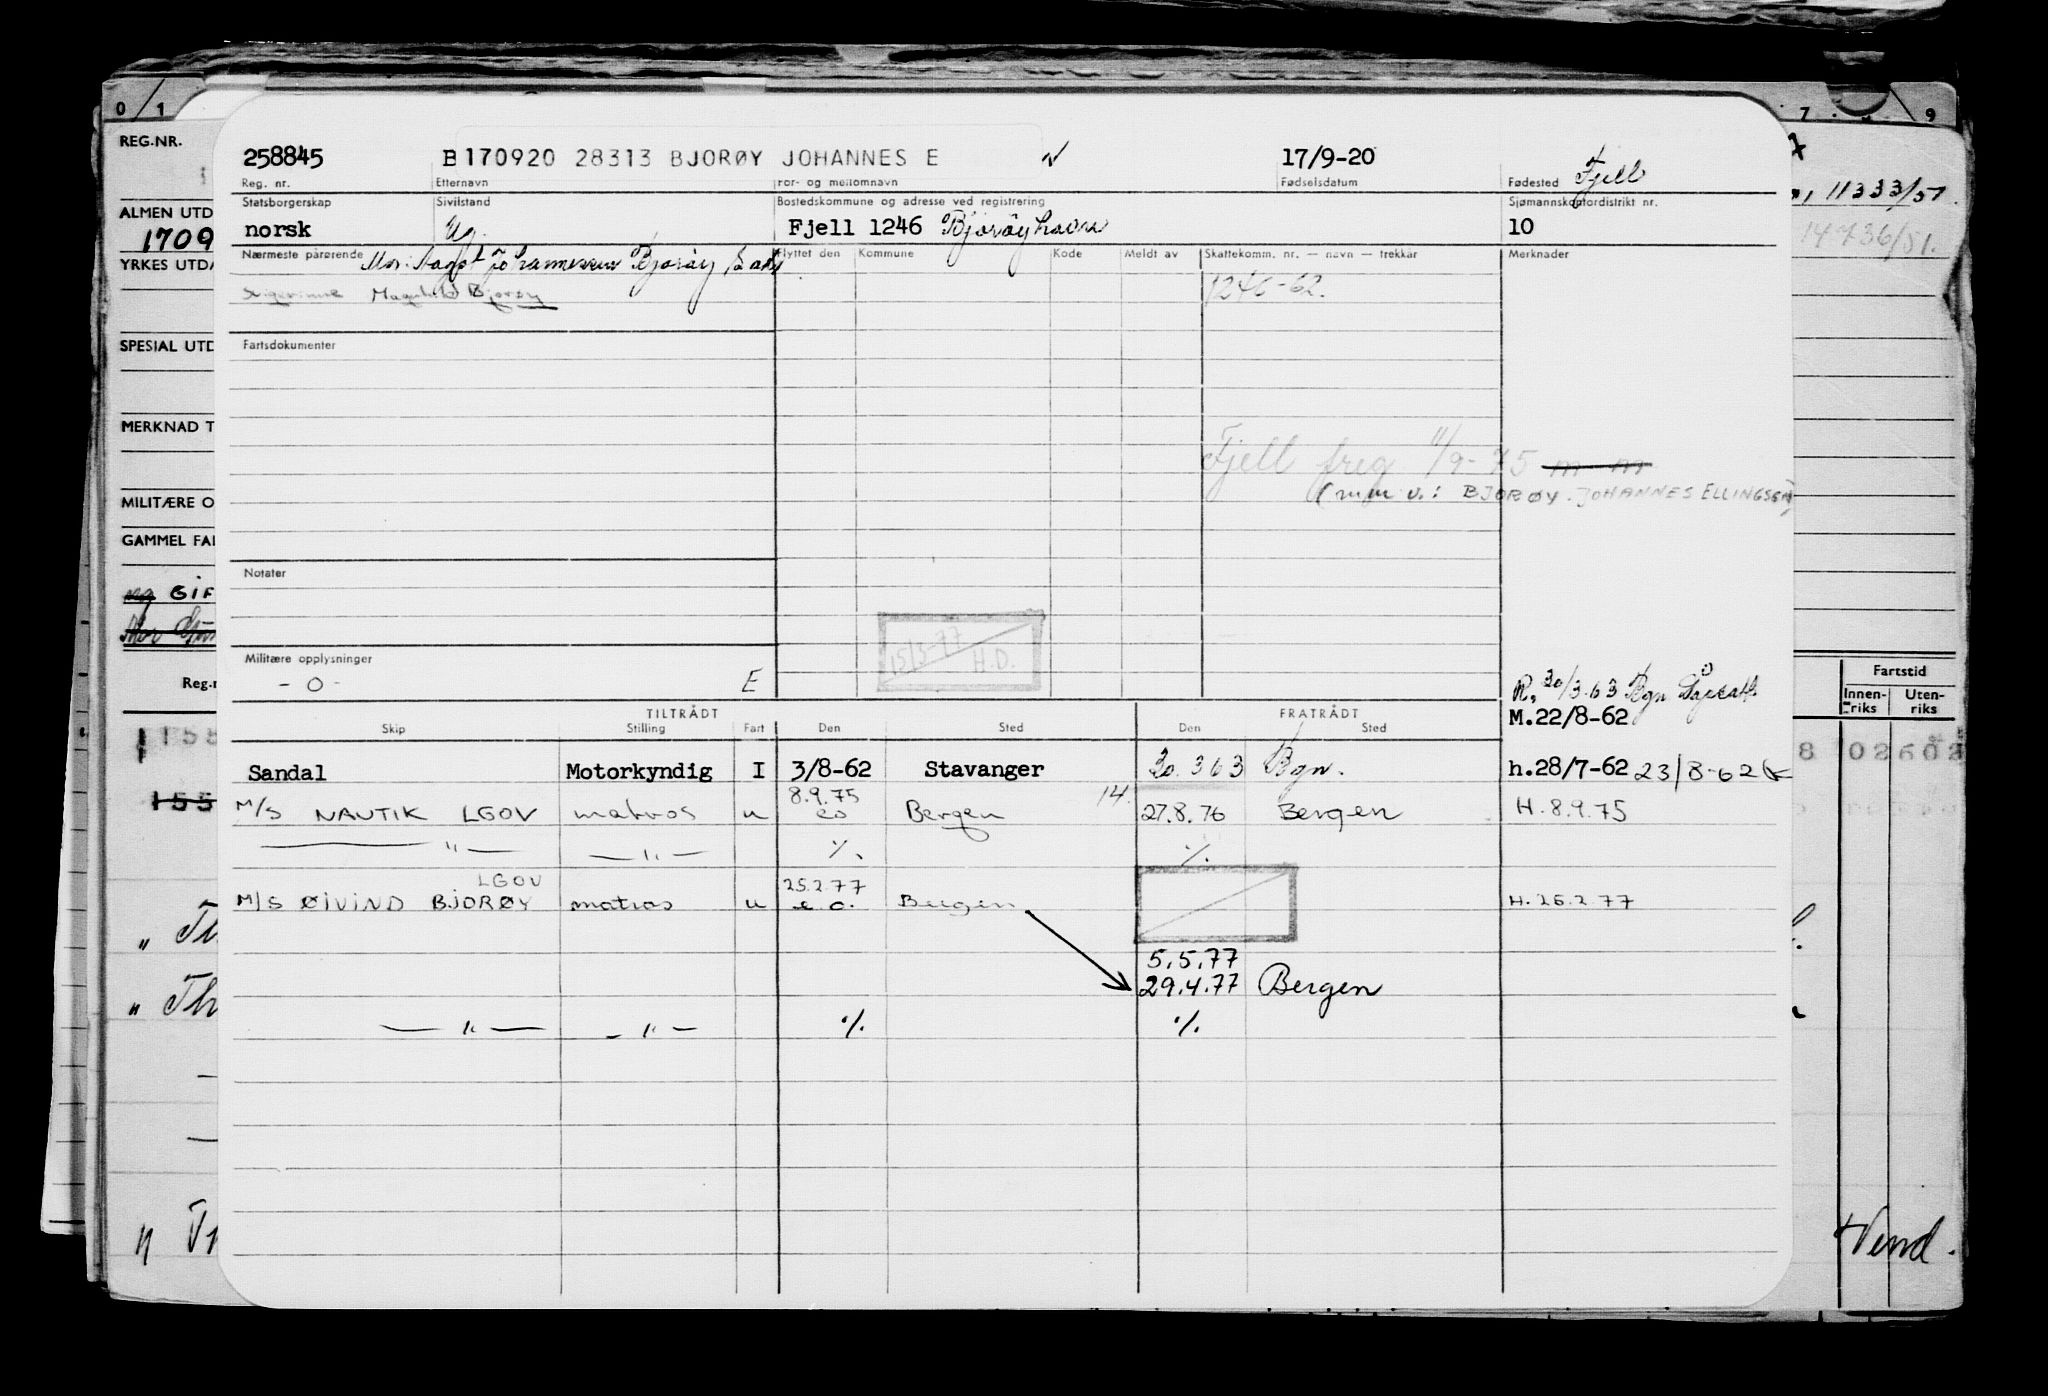 0 1 7 9
REG.NR.
258845 B170920 28313 BJORØY JOHANNES E 17/9-20 Fjell
Reg. nr. Etternavn For- og mellomnavn Fødselsdatum Fødested
11333/51
ALMEN UTD
Statsborgerskap Sivilstand Bostedskommune og adresse ved registrering Sjømannskontordistrikt nr.
1709
norsk Ug. Fjell 1246 Bjorøyhavn 10
14736/51.
YRKES UTDA
Nærmeste pårørende Mor: Johannessen Bjorøy Flyttet den Kommune Kode Meldt av Skattekomm. nr. — navn — trekkår Merknader
Bjorøy 1246-62.
SPESIAL UTD
Fartsdokumenter
MERKNAD T
Fjell freg 11/9-75
(mm v.: BJORØY JOHANNES ELLINGSEN)
MILITÆRE O
GAMMEL FAL
Notater
ug GIF
15/3-77 H.D.
Militære opplysninger
Reg.n
- 0 - E
Fartstid
Innen-riks Uten-riks
R, 30/3.63 Bgn
TILTRÅDT FRATRÅDT M.22/8-62
Skip Stilling Fart Den Sted Den Sted
1155 8 02602
Sandal Motorkyndig I 3/8-62 Stavanger 30.3 63 Bgn. h.28/7-62 23/8-62
155
8.9.75 14.
M/S NAUTIK LGOV matros u eo Bergen 27.8.76 Bergen H.8.9.75
— " — — " — ./. ./.
LGOV 25.2.77
M/S ØIVIND BJORØY matros u e.o. Bergen H.25.2 77
5.5.77
29.4.77 Bergen
" Th
— " — — " — ./. ./.
Vend.